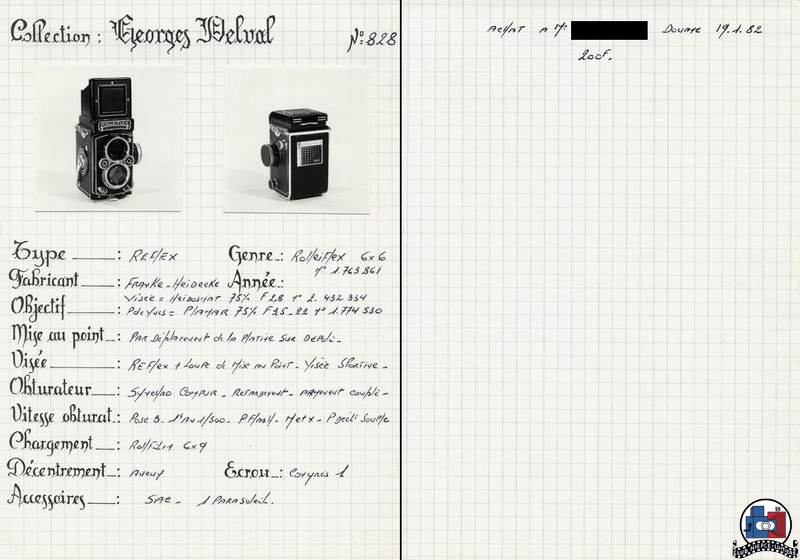 Collection : Georges Delval
N° 828
Type : REFLEX
Genre : Rolleiflex 6x6
n° 1.763.861
Fabricant : FRANKE - Heidecke
Année :
Visée = Heidosmat 75% F 2,8 n° 2. 432 334
Objectif : Pde Vues = PLANAR 75% F3,5_22 n° 1.774 530
Mise au point : PAR Déplacement de la Platine SUR DEPOLI -
Visée : REFlex + Loupe de Mise Au Point - Visée Sportive -
Obturateur : Synchro COMPUR - Retardement - ARMEMENT couplé -
Vitesse obturat : Pose B. 1s Au 1/500 - P Flash - M et X - P Décl. Souple
Chargement : RollFilm 6x9
Décentrement : Aucun
Ecrou : Congrès 1
Accessoires : SAC - 1 PARASOLEIL.
ACHAT A Mr DOUARE 19.1.82
200F.